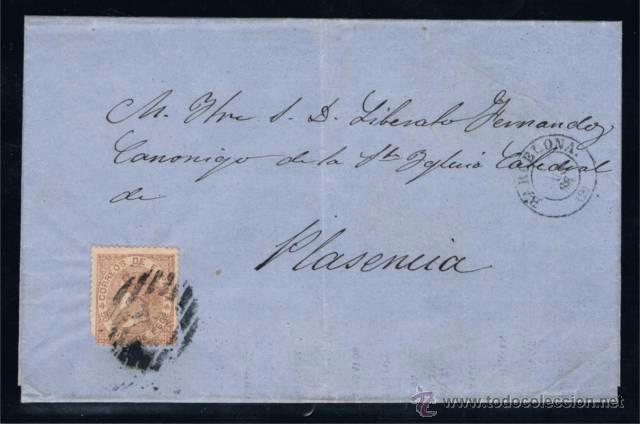 M. Iltre S. D. Liberato Fernandez
Canonigo de la Sta Yglesia Catedral
de
Plasencia
BARCELONA.
CORREOS DE
todocoleccion
www.todocoleccion.net